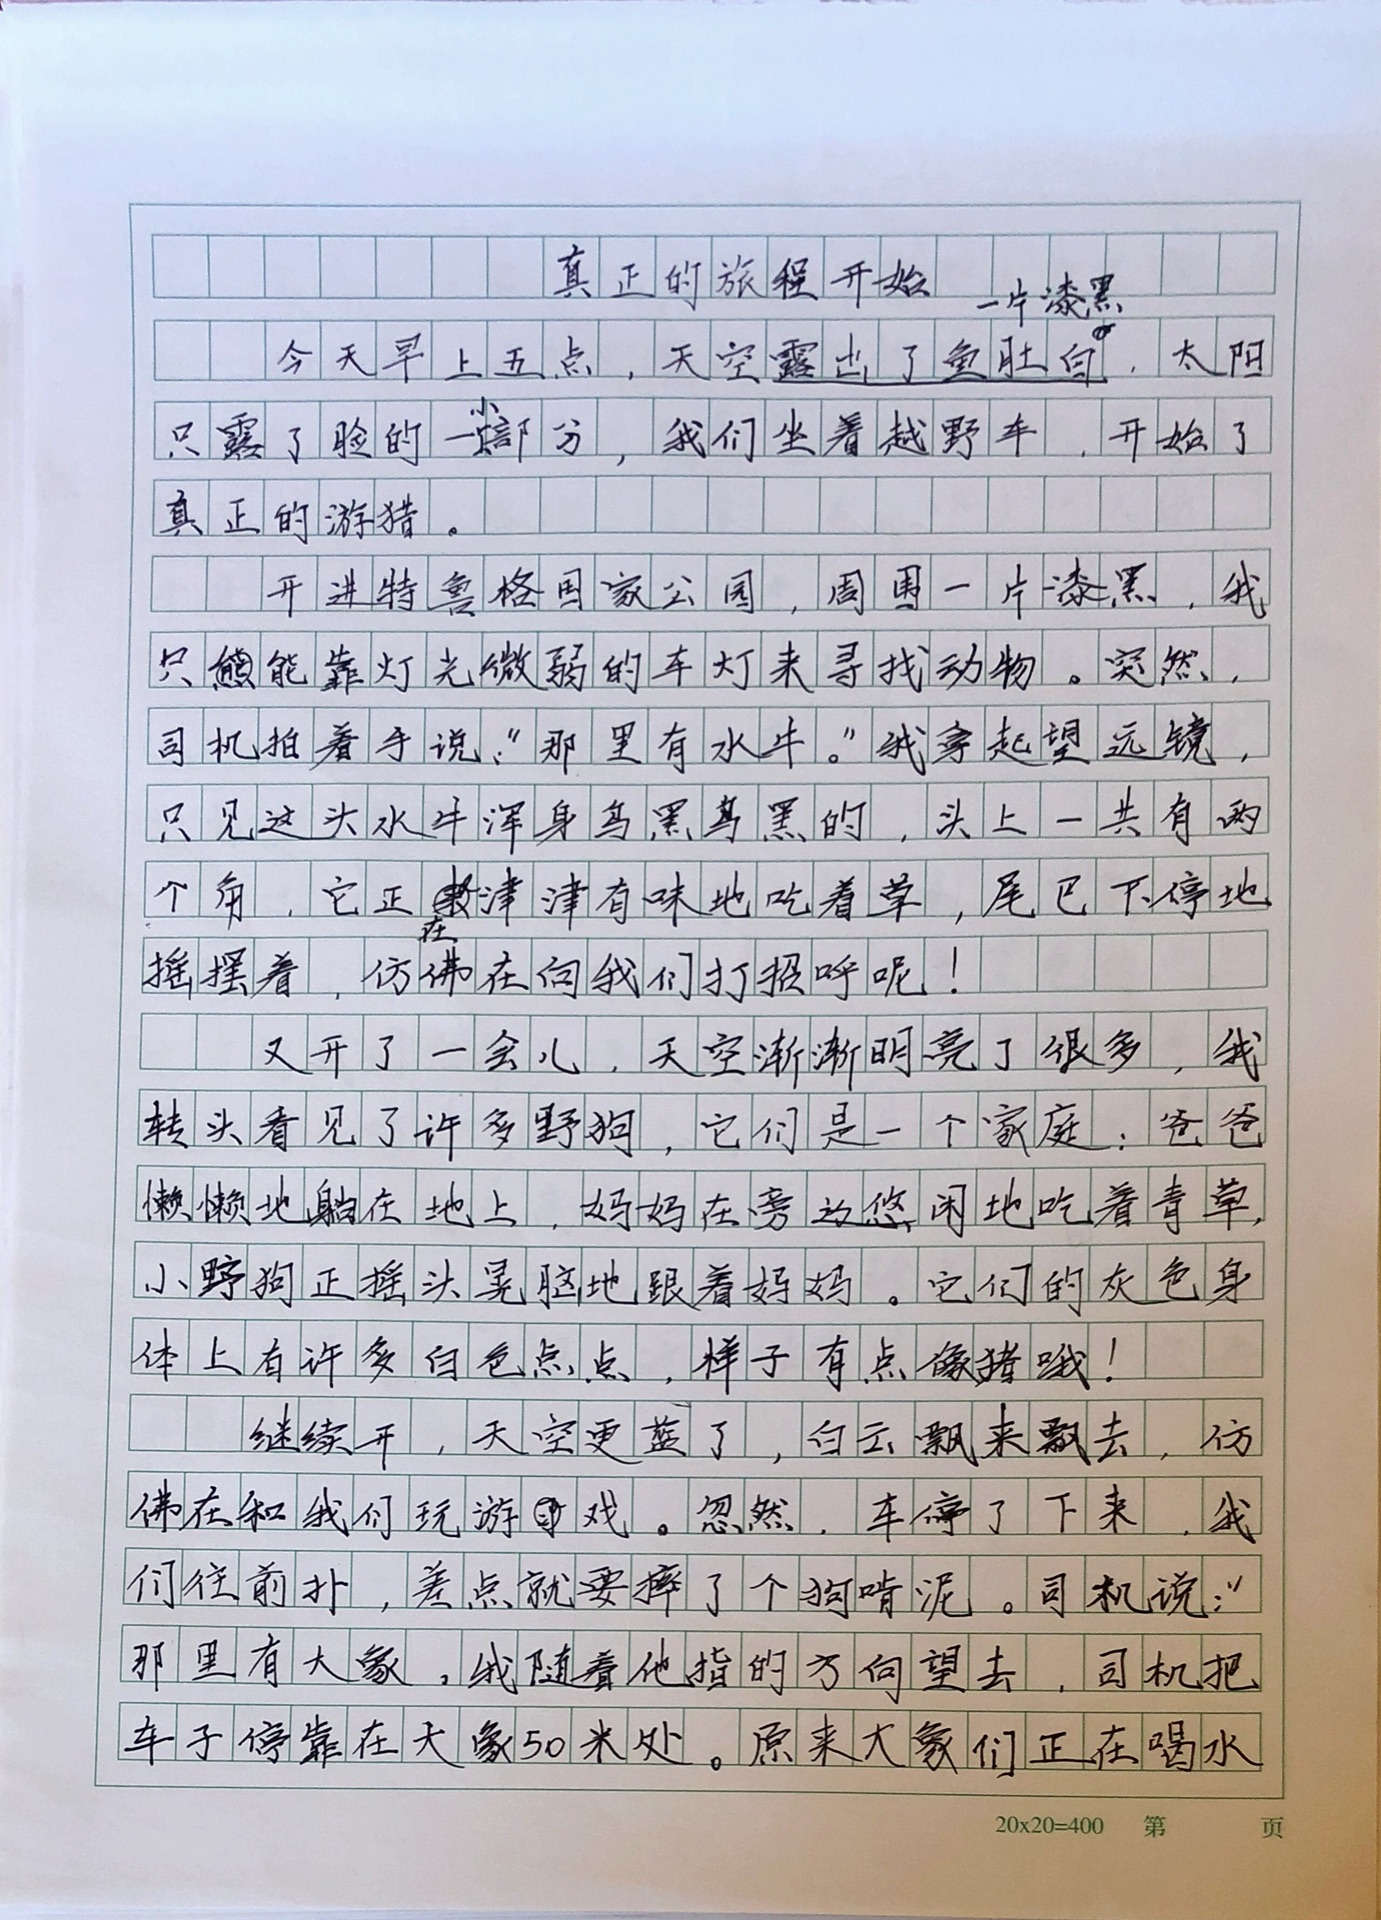 真正的旅程开始
一片漆黑
今天早上五点，天空露出了鱼肚白，太阳
只露了脸的一小部分，我们坐着越野车，开始了
真正的游猎。
开进特鲁格国家公园，周围一片漆黑，我
只能靠灯光微弱的车灯来寻找动物。突然，
司机拍着手说：“那里有水牛。”我拿起望远镜，
只见这头水牛浑身乌黑乌黑的，头上一共有两
个角，它正在津津有味地吃着草，尾巴不停地
摇摆着，仿佛在向我们打招呼呢！
又开了一会儿，天空渐渐明亮了很多，我
转头看见了许多野狗，它们是一个家庭：爸爸
懒懒地躺在地上，妈妈在旁边悠闲地吃着青草，
小野狗正摇头晃脑地跟着妈妈。它们的灰色身
体上有许多白色点点，样子有点像猪哦！
继续开，天空更蓝了，白云飘来飘去，仿
佛在和我们玩游戏。忽然，车停了下来，我
们往前扑，差点就要摔了个狗啃泥。司机说：“
那里有大象。我随着他指的方向望去，司机把
车子停靠在大象50米处。原来大象们正在喝水
20x20=400 第 页